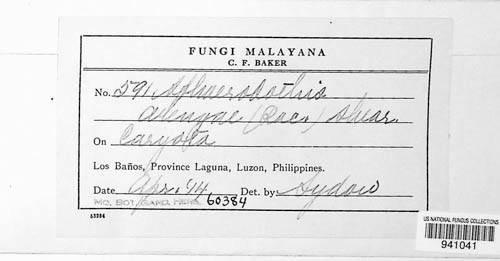 FUNGI MALAYANA
C. F. BAKER
No. 591. Sphaerodothis
arengae (Rac.) Shear.
On Caryota
Los Baños, Province Laguna, Luzon, Philippines.
Date Apr. '14. Det. by: Sydow
MO. BOT. GARD. HERB. 60384
53384
US NATIONAL FUNGUS COLLECTIONS
941041